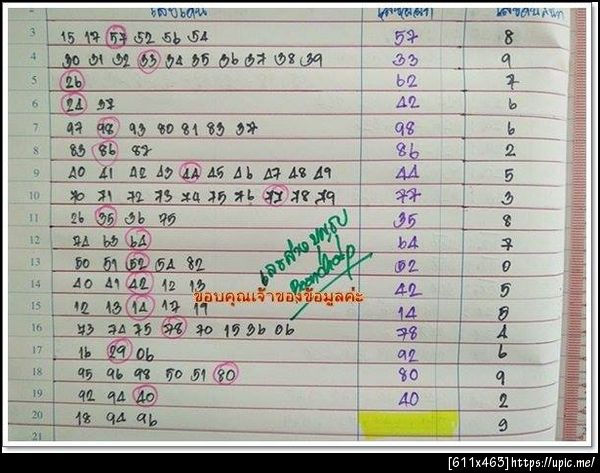 เลขเด่น เลขที่ออก
3 15 17 57 52 56 54 57 8
4 30 31 32 33 34 35 36 37 38 39 33 9
5 26 62 7
6 24 37 42 6
7 97 98 93 80 81 83 37 98 6
8 83 86 87 86 2
9 40 41 42 43 44 45 46 47 48 49 44 5
10 70 71 72 73 74 75 76 77 78 79 77 3
11 26 35 36 75 35 8
12 74 63 64 64 7
13 50 51 52 54 82 52 0
14 40 41 42 12 13 42 5
ขอบคุณเจ้าของข้อมูลค่ะ
15 12 13 14 17 19 14 5
16 73 74 75 78 70 15 36 06 78 4
17 16 29 06 92 6
18 95 96 98 50 51 80 80 9
19 92 94 40 40 2
20 18 94 96 9
21
[611x463]https://upic.me/